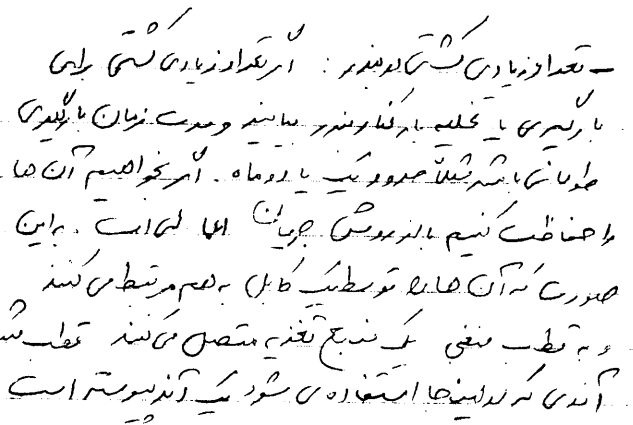 - تعداد زیادی کشتی در بندر : اگر تعداد زیادی کشتی برای
بارگیری یا تخلیه بار کنار بندر بیایند و مدت زمان بارگیری
طولانی باشد مثلاً حدود یک یا دو ماه . اگر بخواهیم آن ها
را حفاظت کنیم باید روش جریان اعمالی است . به این
صورت که آن ها را توسط یک کابل به هم مرتبط می کنند
و به قطب منفی یک منبع تغذیه متصل می کنند قطب
آندی که در اینجا استفاده می شود یک آند پیوسته است